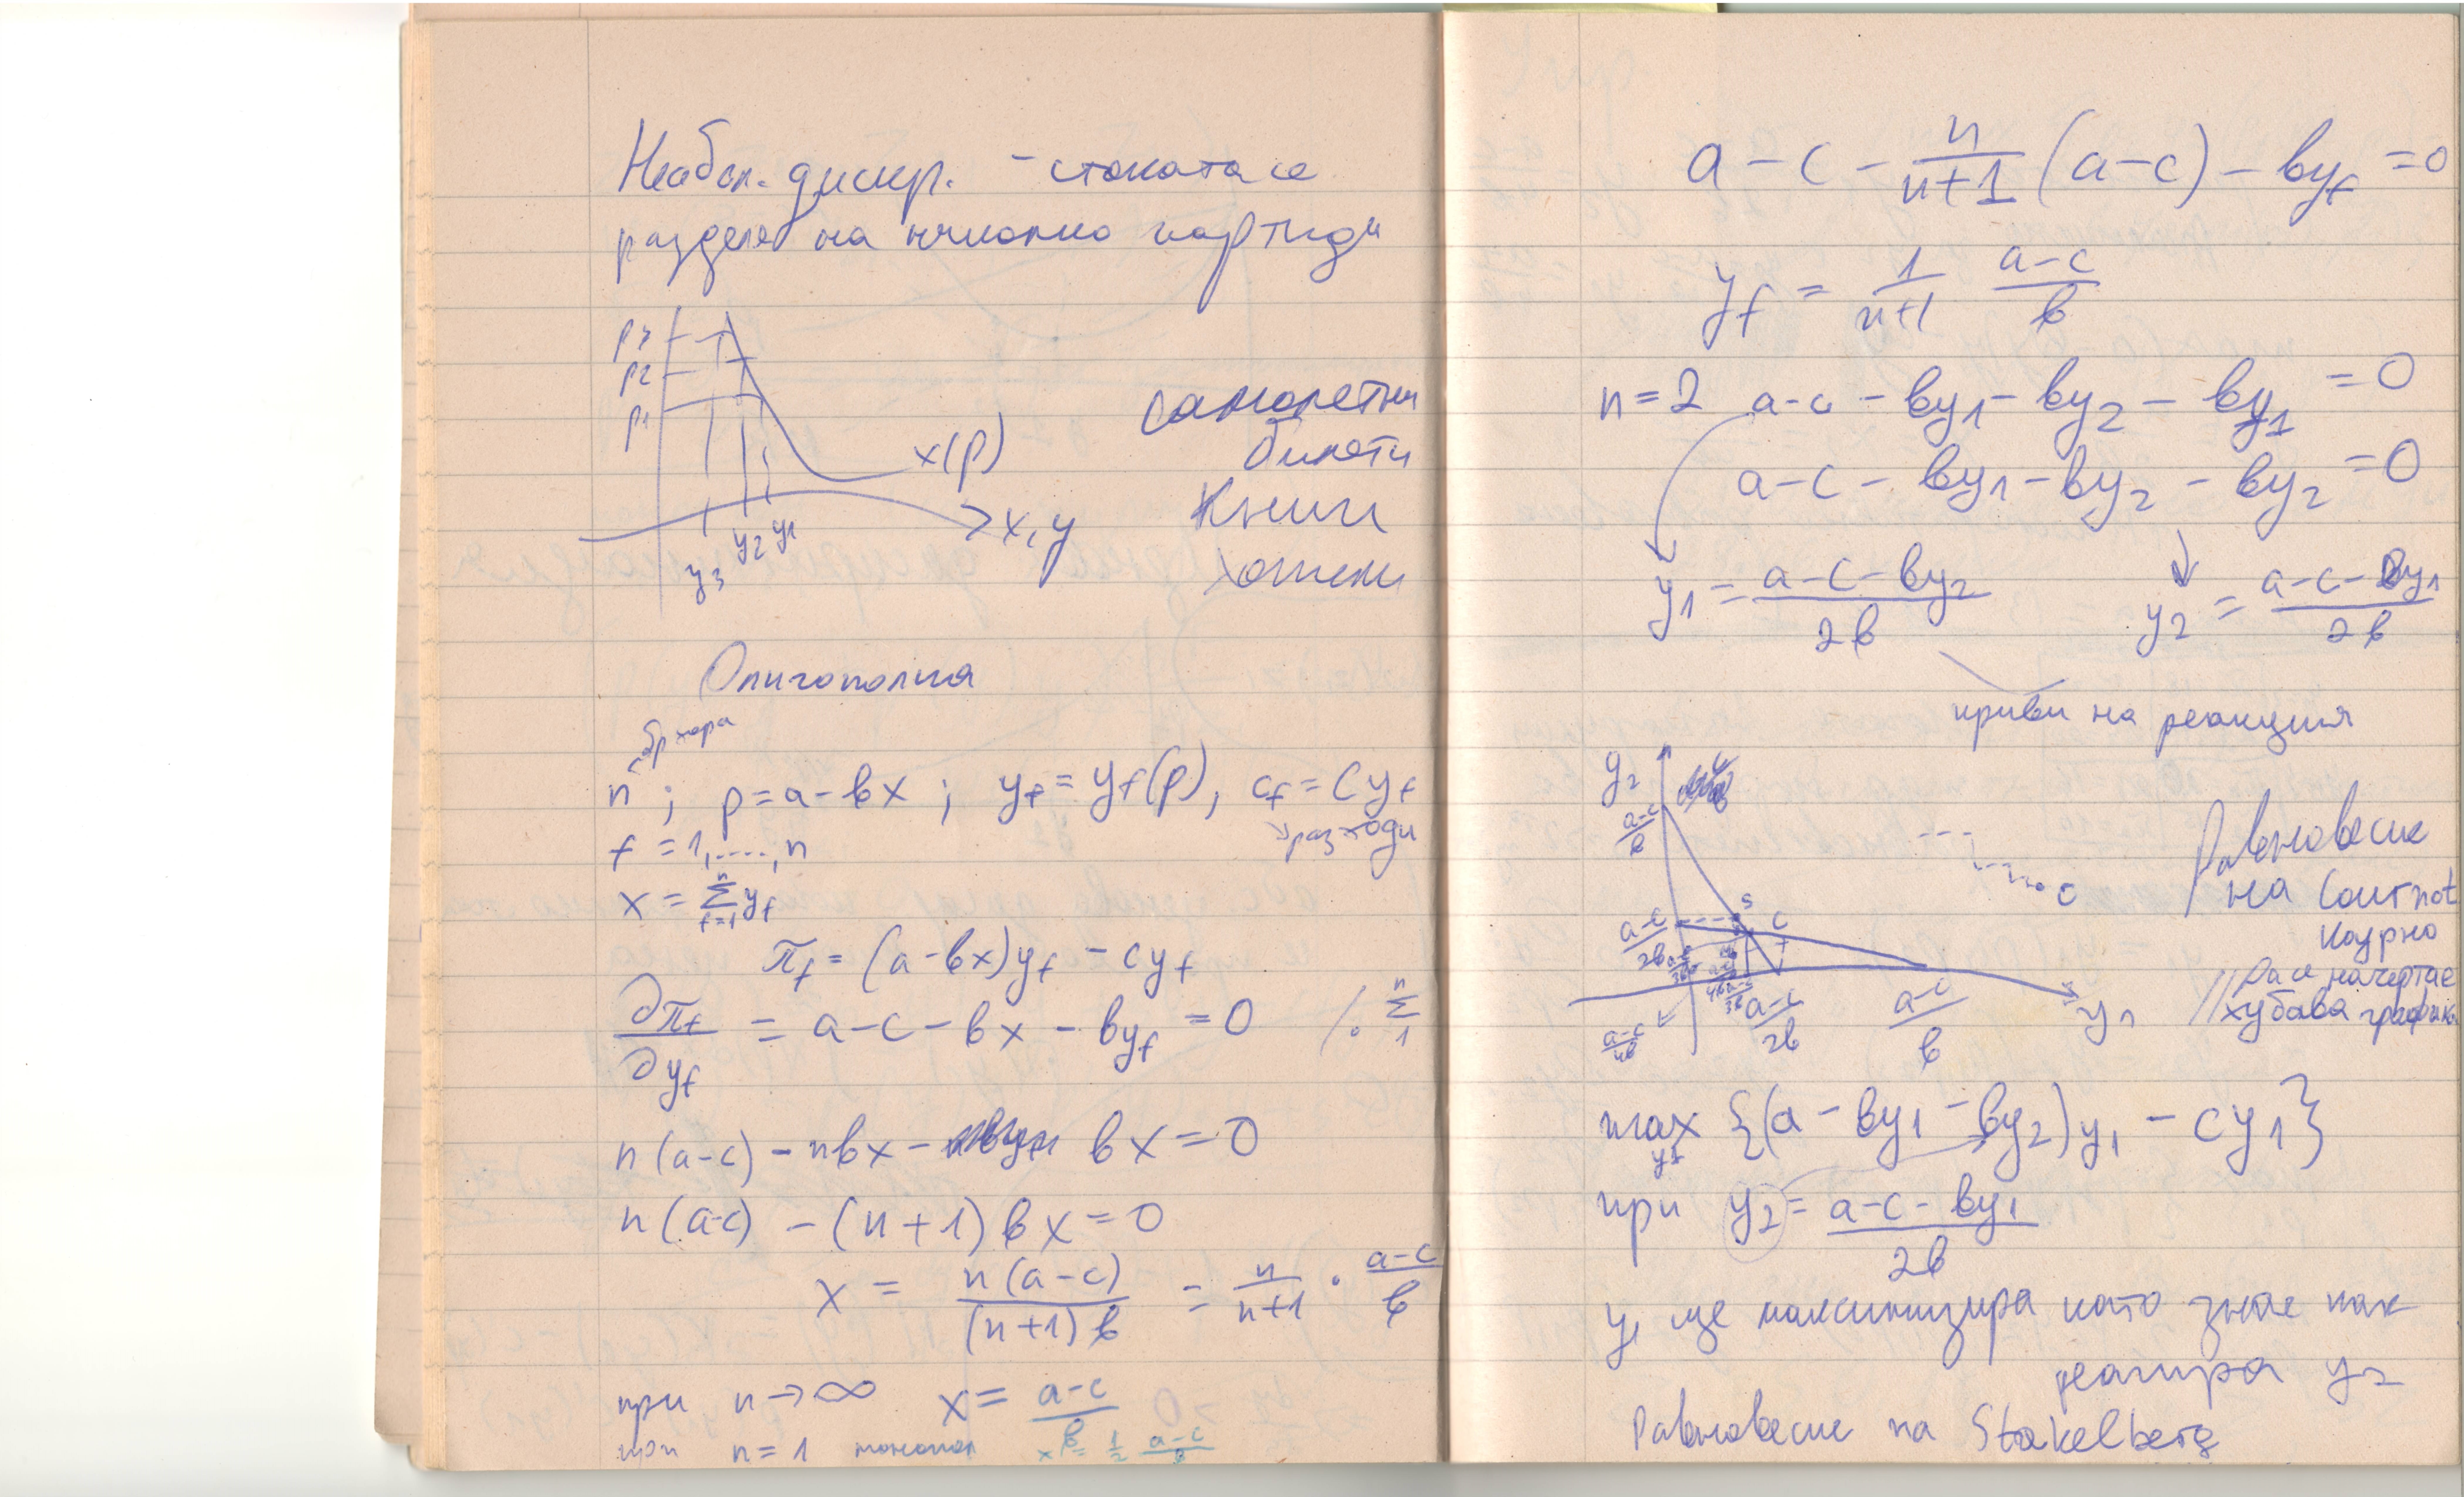 дискр. - стоката се
разделя на няколко партиди
p3
p2
p1
x(p)
x, y
y3 y2 y1
самолетни
билети
Книги
хотели
Олигополия
n ; p = a - bx ; yf = yf(p), cf = Cyf
разходи
f = 1,....,n
x = n∑f=1 yf
πf = (a-bx)yf - cyf
∂πf/∂yf = a-c-bx - byf = 0 /. n∑1
n(a-c) - nbx - bx = 0
n(a-c) - (n+1)bx = 0
x = n(a-c)/(n+1)b = n/n+1 . a-c/b
при n→∞ x = a-c/b
при n=1 монопол x = 1/2 a-c/b
a - c - n/n+1 (a-c) - byf = 0
yf = 1/n+1 a-c/b
n=2 a-c - by1 - by2 - by1 = 0
a-c - by1 - by2 - by2 = 0
y1 = a-c-by2/2b y2 = a-c-by1/2b
криви на реакция
y2
a-c/b
a-c/2b
S
C
a-c/4b
a-c/2b
a-c/b
y1
c
Равновесие
на Cournot
Курно
// Да се начертае
хубава графика
max y1 {(a - by1 - by2)y1 - cy1}
при y2 = a-c-by1/2b
y1 ще максимизира като знае как
реагира y2
Равновесие на Stakelberg